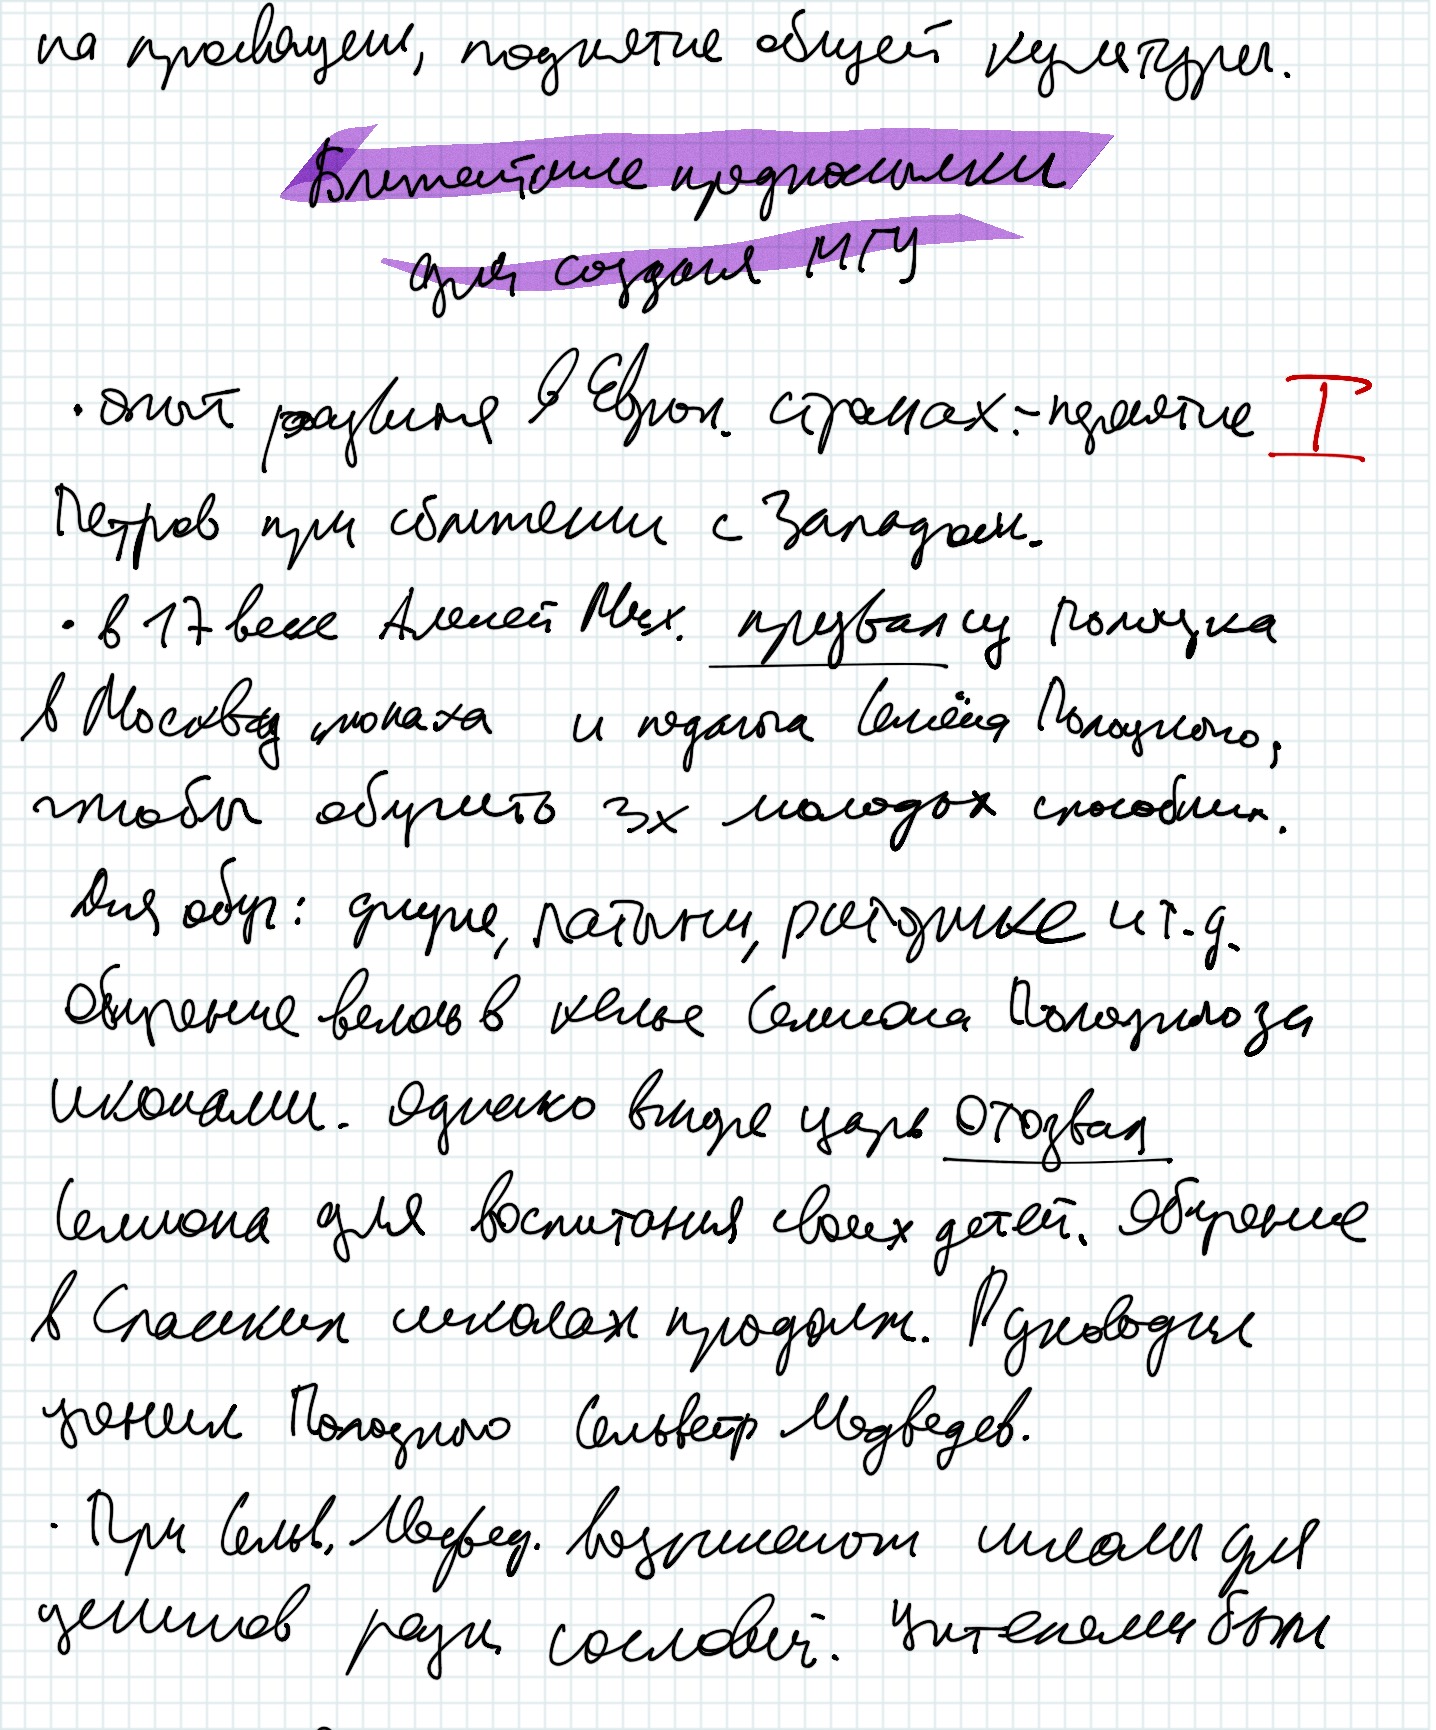 на просвящен, поднятие общей культуры.
Ближайшие предпосылки
для создания МГУ
· опыт развития в Европ. странах - принятие I
Петров при сближении с Западом.
· в 17 веке Алексей Мих. призвал из Полоцка
в Москву монаха и педагога Семёна Полоцкого,
чтобы обучить 3х молодых способных.
Для обуч: латыни, и т.д.
Обучение велось в келье Семиона Полоцкого за
иконами. Однако вскоре царь отозвал
Семиона для воспитания своих детей. Обучение
в Спасских школах продолж. Руководил
ученик Полоцкого Сельвестр Медведев.
· При Сельв. Медвед. возникают школы для
учеников разн. сословий. Учителями были